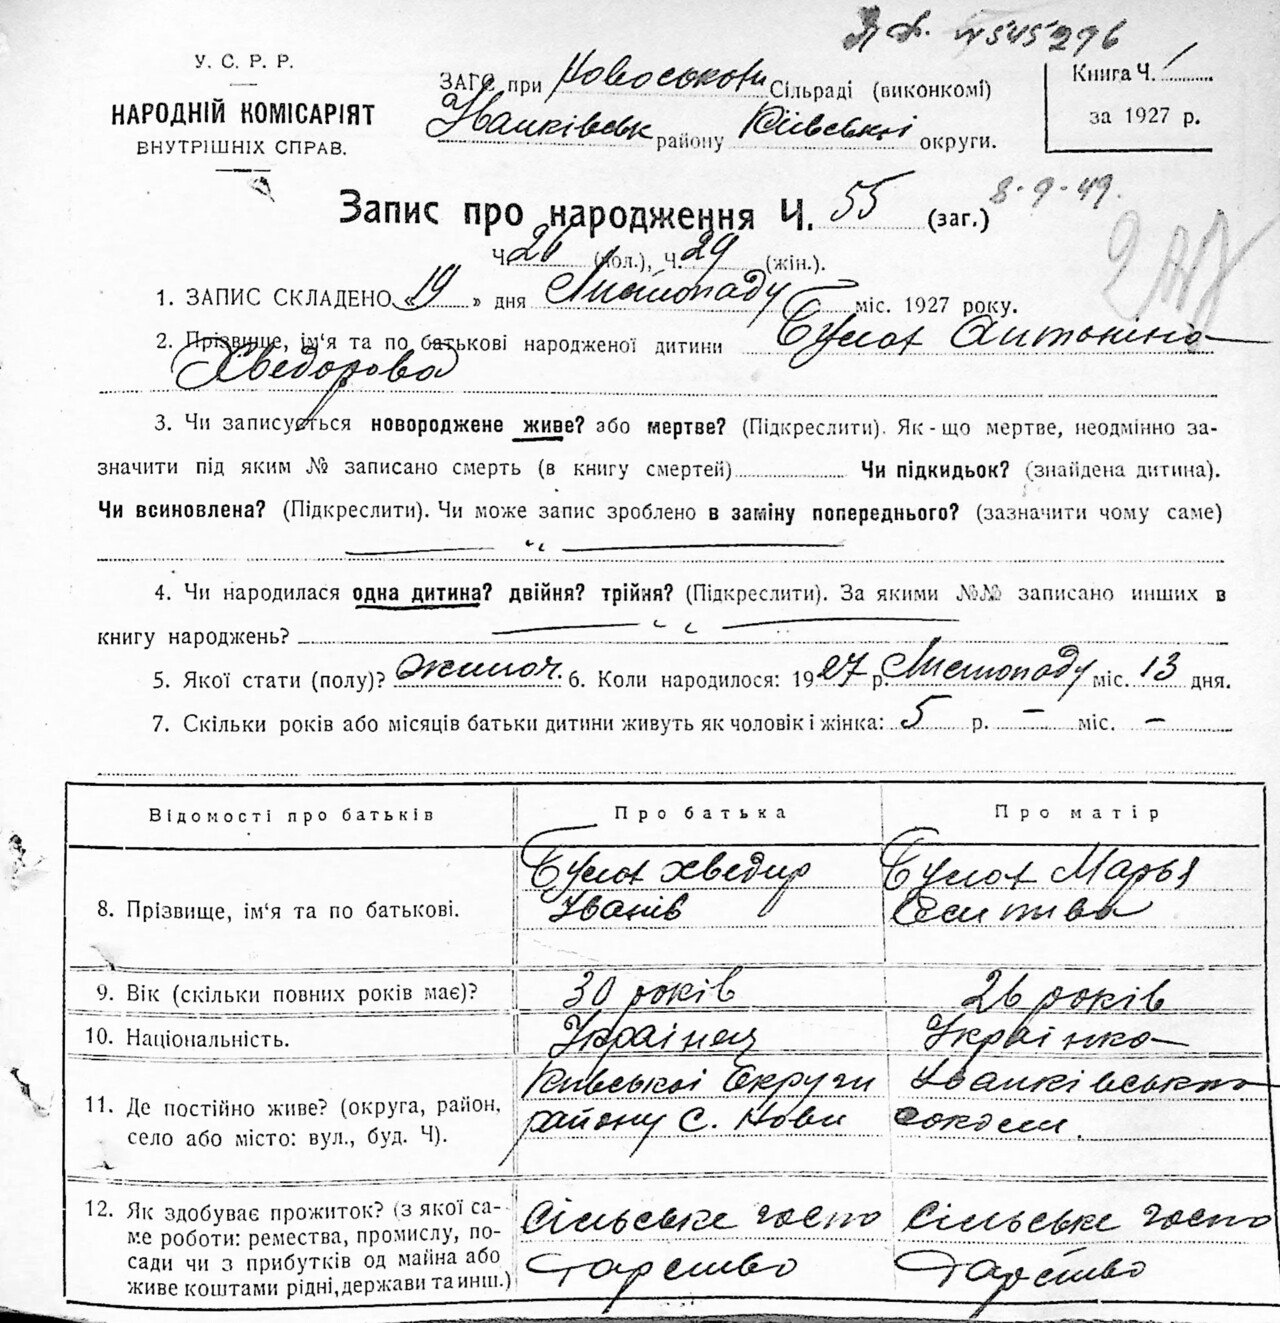 У. С. Р. Р.
НАРОДНІЙ КОМІСАРІЯТ
ВНУТРІШНІХ СПРАВ.
№ 545296
ЗАГС при Новосокови Сільраді (виконкомі)
Іванківськ району Київської округи.
Книга Ч. 1
за 1927 р.
8-9-49.
Запис про народження Ч. 55 (заг.)
Ч. 26 (пол.), Ч. 29 (жін.).
1. ЗАПИС СКЛАДЕНО „19" дня Листопаду міс. 1927 року.
2. Прізвище, ім'я та по батькові народженої дитини Булат Антоніна
Хведорова
3. Чи записується новороджене живе? або мертве? (Підкреслити). Як-що мертве, неодмінно за-
значити під яким № записано смерть (в книгу смертей) Чи підкидьок? (знайдена дитина).
Чи всиновлена? (Підкреслити). Чи може запис зроблено в заміну попереднього? (зазначити чому саме)
— „ —
4. Чи народилася одна дитина? двійня? трійня? (Підкреслити). За якими №№ записано инших в
книгу народжень? — „ —
5. Якої стати (полу)? жіноч. 6. Коли народилося: 1927 р. Листопаду міс. 13 дня.
7. Скільки років або місяців батьки дитини живуть як чоловік і жінка: 5 р. — міс. —
Відомості про батьків Про батька Про матір
8. Прізвище, ім'я та по батькові.
Булат Хведир
Іванів
Булат Марья
Есипива
9. Вік (скільки повних років має)? 30 років 26 років
10. Національність. Українец Українка
11. Де постійно живе? (округа, район,
село або місто: вул., буд. Ч).
Київської Округи Іванківсько
району С. Нови соколи.
12. Як здобуває прожиток? (з якої са-
ме роботи: ремества, промислу, по-
сади чи з прибутків од майна або
живе коштами рідні, держави та инш.)
Сільське госпо
дарство
Сільське госпо
дарство